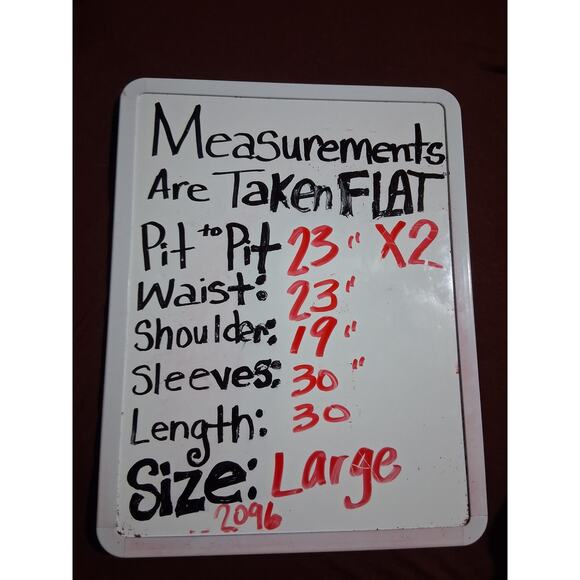 Measurements
Are Taken FLAT
Pit to Pit 23" X2
Waist: 23"
Shoulder: 19"
Sleeves: 30"
Length: 30
Size: Large
2096